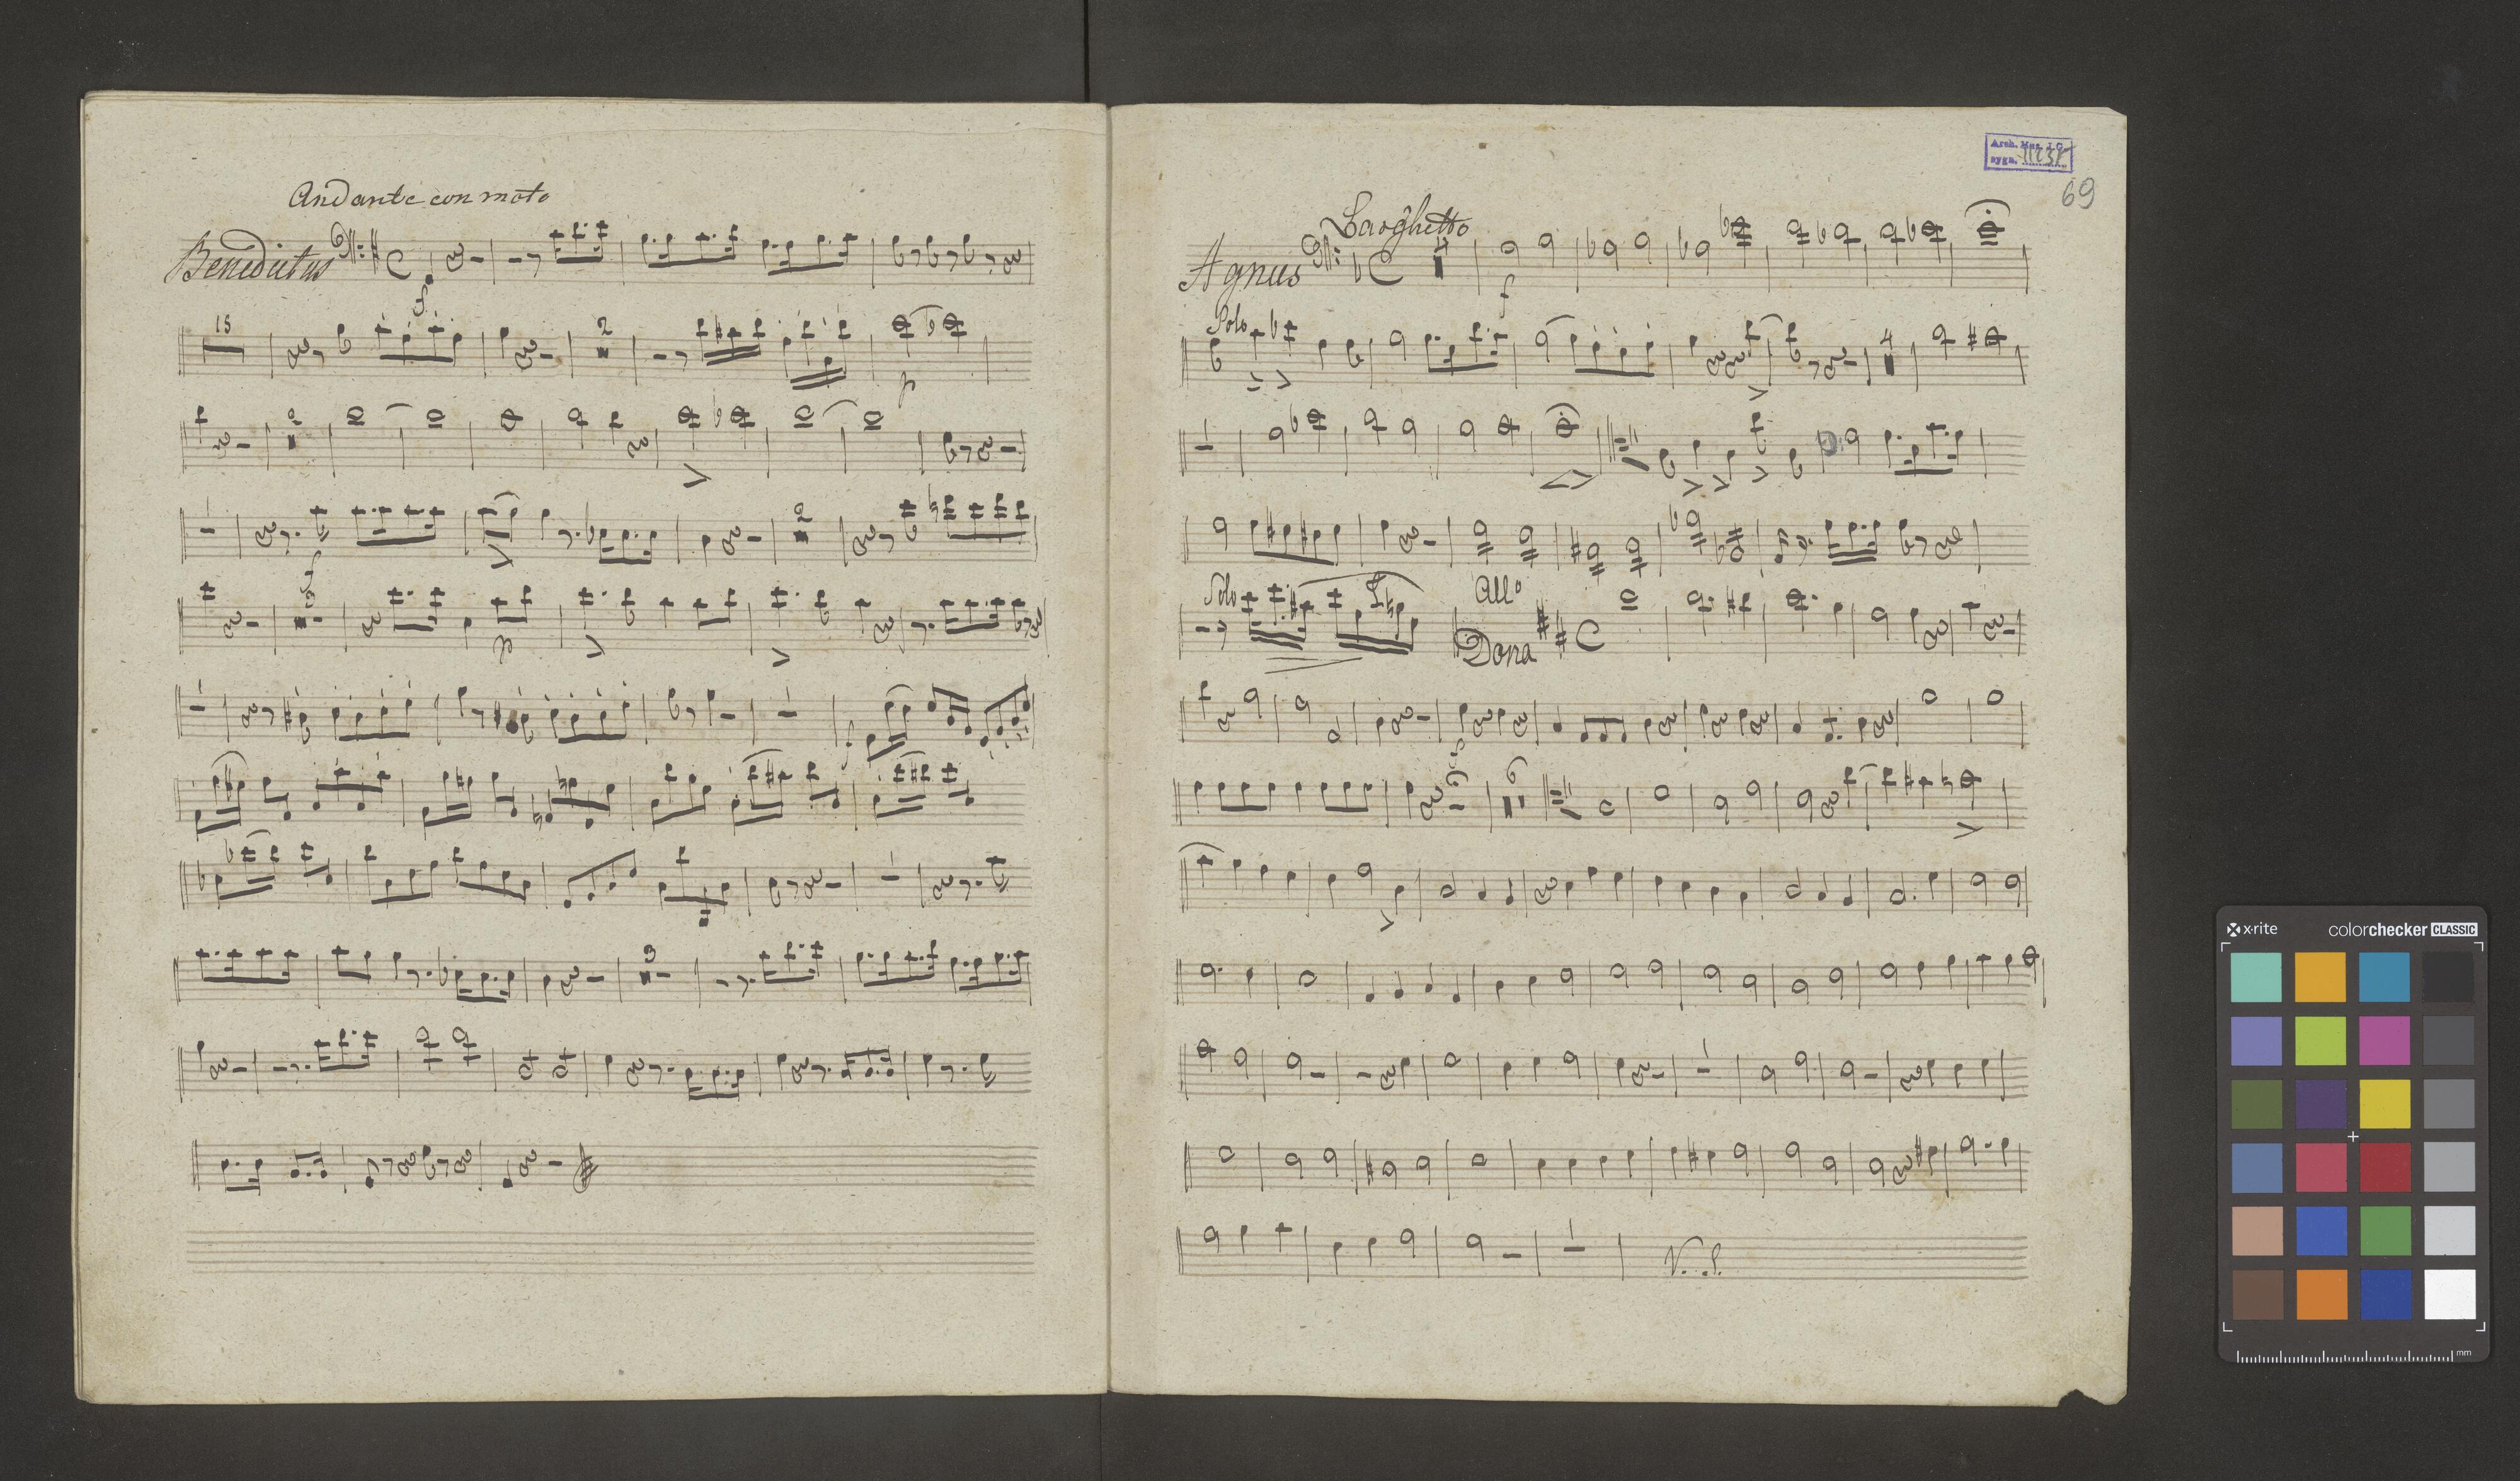 Andante con moto
Benedictus
f
15
2
p
2
f
2
3
p
f
3
Arch. Mus. J.G.
sygn.
69
Larghetto
Agnus
f
Solo
4
Solo
All°
Dona
6
V. S.
x-rite
colorchecker CLASSIC
mm